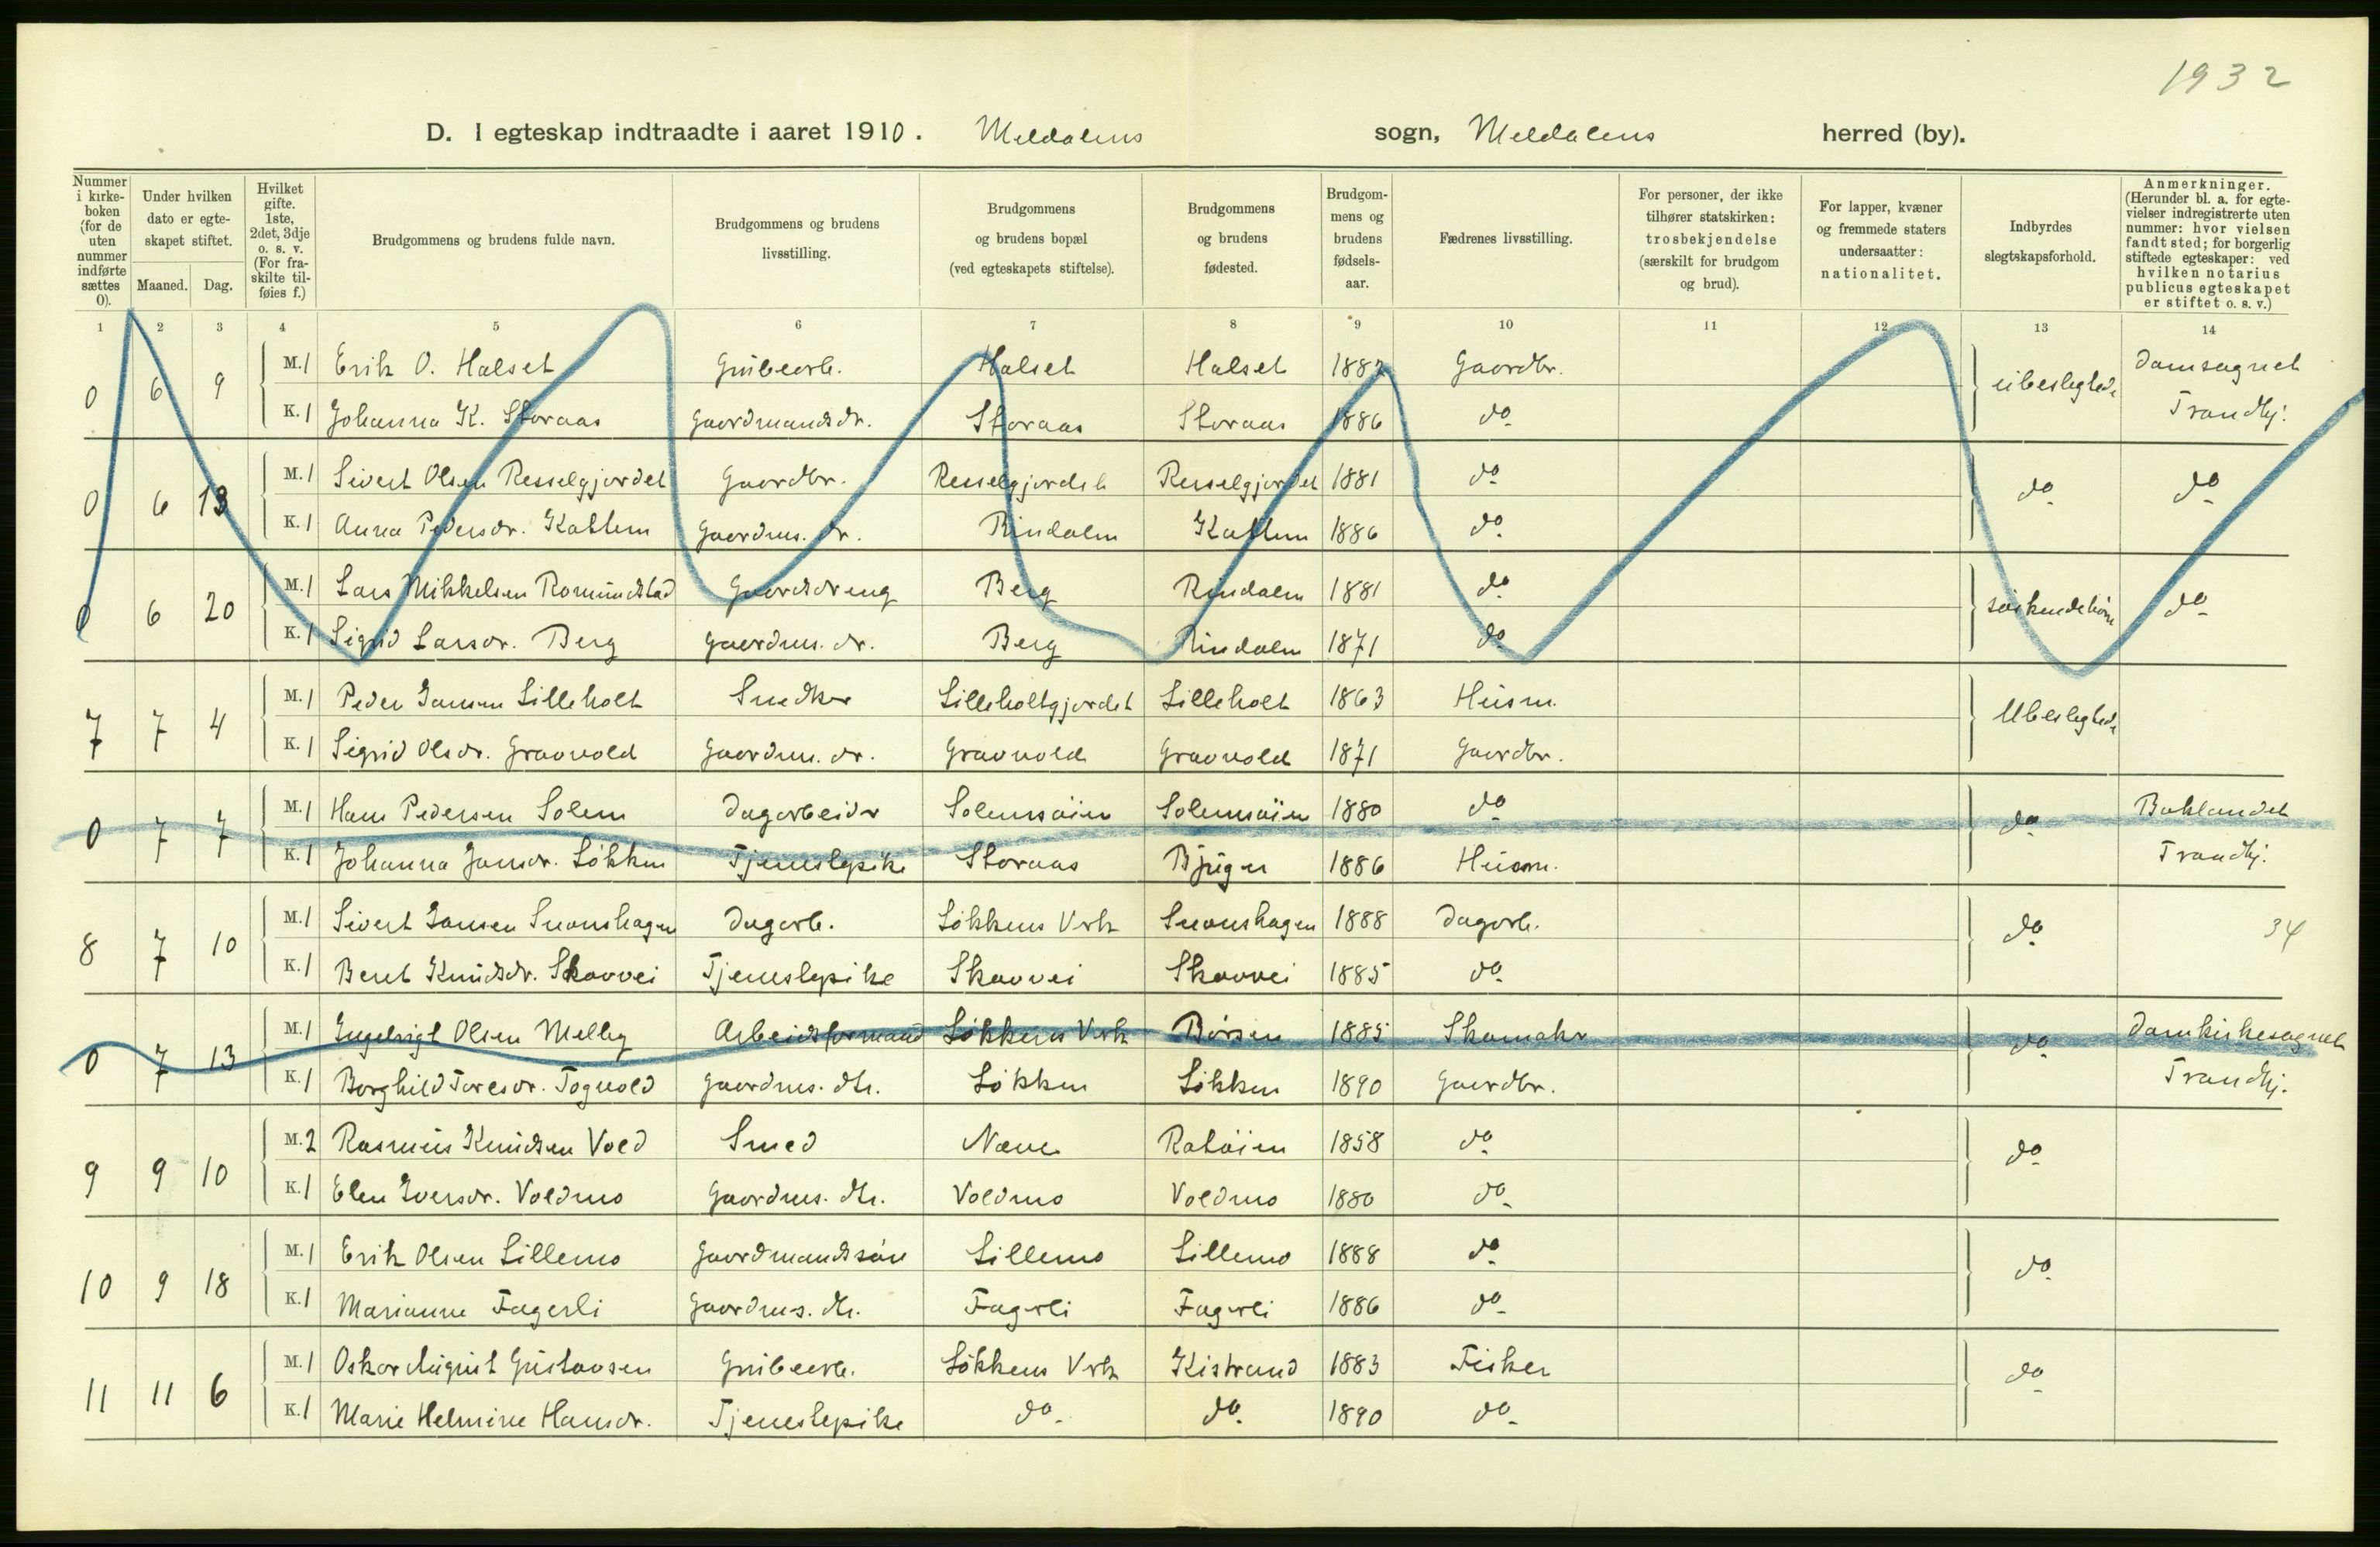 1932
D. I egteskap indtraadte i aaret 1910. Meldalens sogn, Meldalens herred (by).
Nummer i kirke-boken (for de uten nummer indførte sættes 0).
Under hvilken dato er egte-skapet stiftet.
Maaned. Dag.
Hvilket gifte. 1ste, 2det, 3dje o. s. v. (For fra-skilte til-føies f.)
Brudgommens og brudens fulde navn.
Brudgommens og brudens livsstilling.
Brudgommens og brudens bopæl (ved egteskapets stiftelse).
Brudgommens og brudens fødested.
Brudgom-mens og brudens fødsels-aar.
Fædrenes livsstilling.
For personer, der ikke tilhører statskirken: trosbekjendelse (særskilt for brudgom og brud).
For lapper, kvæner og fremmede staters undersaatter: nationalitet.
Indbyrdes slegtskapsforhold.
Anmerkninger. (Herunder bl. a. for egte-vielser indregistrerte uten nummer: hvor vielsen fandt sted; for borgerlig stiftede egteskaper: ved hvilken notarius publicus egteskapet er stiftet o. s. v.)
1 2 3 4 5 6 7 8 9 10 11 12 13 14
0 6 9 M. 1 Erik O. Halset Grubearb. Halset Halset 1882 Gaardbr. ubeslegtede Domsognet
K. 1 Johanna K. Storaas Gaardmandsdr. Storaas Storaas 1886 do Trondhj.
0 6 13 M. 1 Sivert Olsen Resselgjordet Gaardbr. Resselgjordet Resselgjordet 1881 do do do
K. 1 Anna Pedersdr. Kattem Gaardms. dr. Rindalen Kattem 1886 do
0 6 20 M. 1 Lars Mikkelsen Romundstad Gaardsdreng Berg Rindalen 1881 do søskendebørn do
K. 1 Sigrid Larsdr. Berg Gaardms. dr. Berg Rindalen 1871 do
7 7 4 M. 1 Peder Jansen Lilleholt Snedker Lilleholtgjordet Lilleholt 1863 Husm. Ubeslegtede
K. 1 Sigrid Olsdr. Graavold Gaardms. dr. Graavold Graavold 1871 Gaardbr.
0 7 7 M. 1 Hans Pedersen Solem Dagarbeider Solemsøien Solemsøien 1880 do do Baklandet
K. 1 Johanna Jonsdr. Løkken Tjenestepike Storaas Bjugn 1886 Husm. Trondhj.
8 7 10 M. 1 Sivert Jansen Snoenshagen Dagarb. Løkkens Verk Snoenshagen 1888 Dagarb. do 34
K. 1 Beret Knudsdr. Skovvei Tjenestepike Skovvei Skovvei 1885 do
0 7 13 M. 1 Ingebrigt Olsen Melby Arbeidsformand Løkkens Verk Børsen 1885 Skomaker do Domkirkesognet
K. 1 Borghild Toresdr. Togvold Gaardms. dtr. Løkken Løkken 1890 Gaardbr. Trondhj.
9 9 10 M. 2 Rasmus Knudsen Vold Smed Næve Ratøien 1858 do do
K. 1 Elen Iversdr. Voldmo Gaardms. dtr. Voldmo Voldmo 1880 do
10 9 18 M. 1 Erik Olsen Lillemo Gaardmandssøn Lillemo Lillemo 1888 do do
K. 1 Marianne Fagerli Gaardms. dtr. Fagerli Fagerli 1886 do
11 11 6 M. 1 Oskar August Gustavsen Grubearb. Løkkens Verk Kistrand 1883 Fisker do
K. 1 Marie Helmine Hansdr. Tjenestepike do. do. 1890 do